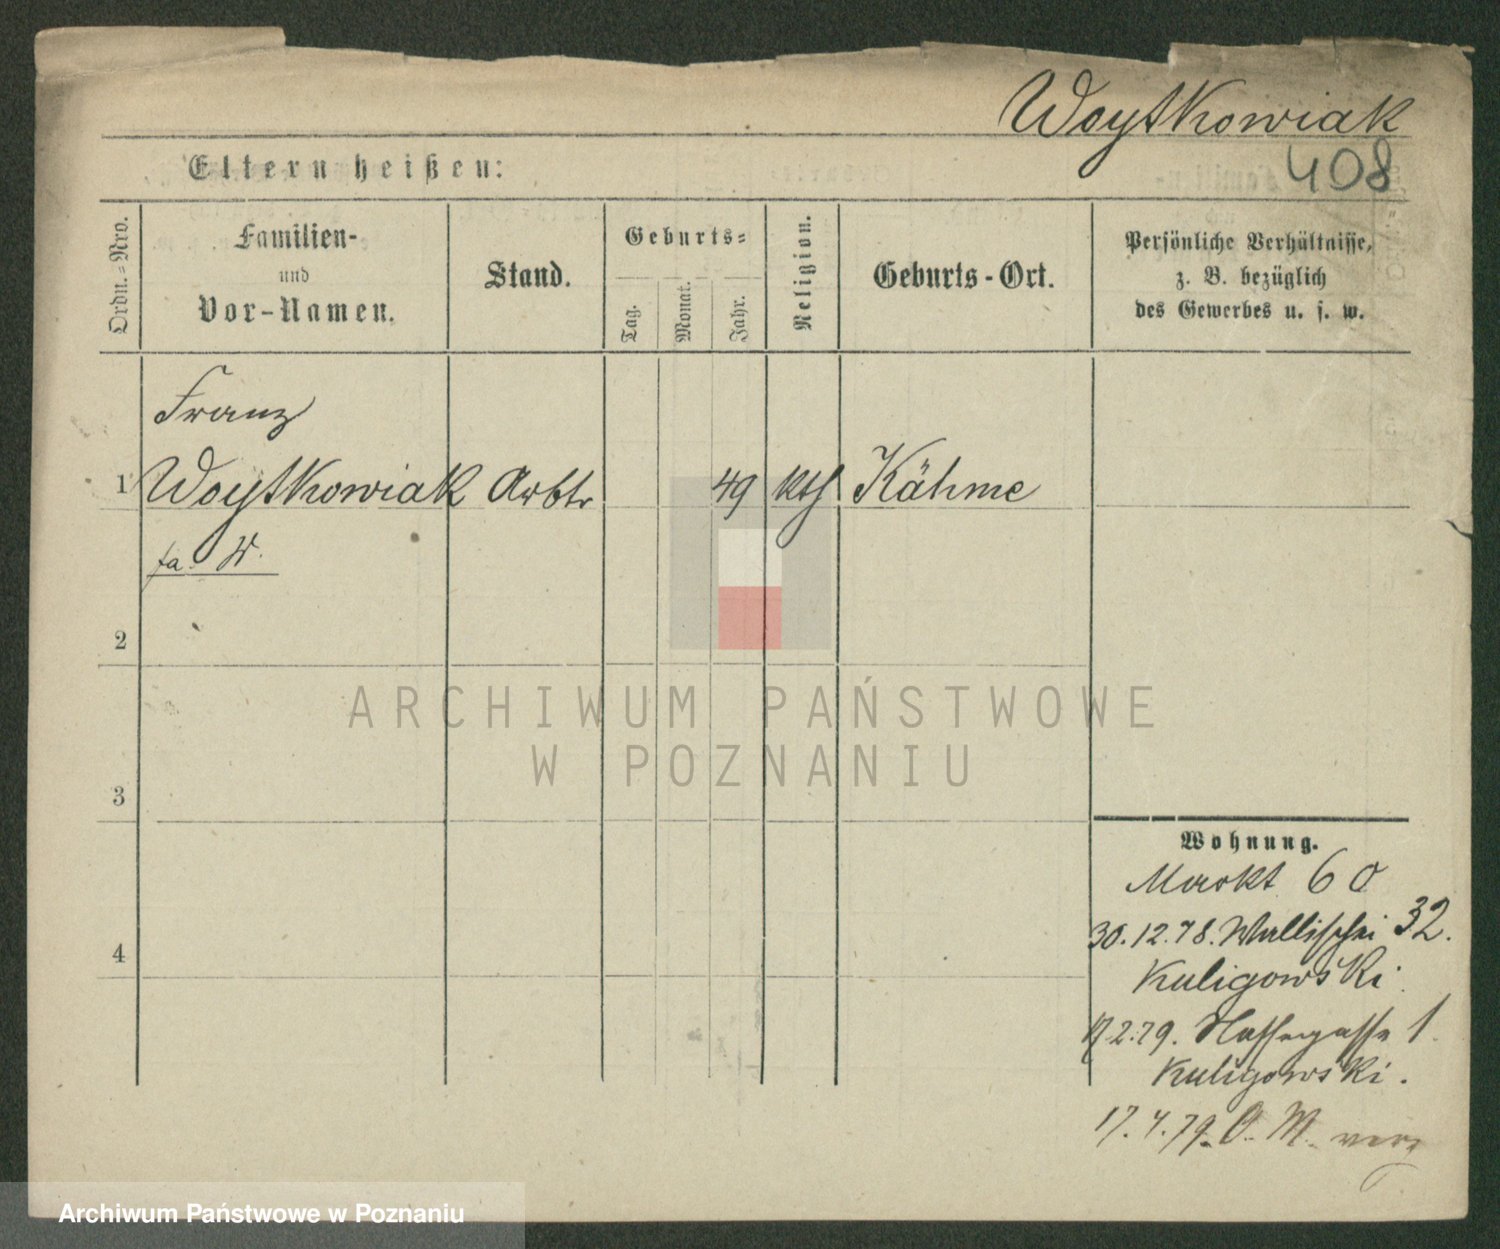 Woytkowiak
408
Eltern heißen:
Ordn.-Nro.
Familien-
und
Vor-Namen.
Stand.
Geburts-
Tag.
Monat.
Jahr.
Religion.
Geburts-Ort.
Persönliche Verhältnisse,
z. B. bezüglich
des Gewerbes u. s. w.
Franz
1 Woytkowiak Arbtr 49 kth Kähme
fa. W.
2
3
4
Wohnung.
Markt 60
30.12.78. Wallischei 32.
Kuligowski.
17.2.79. Gasse 1.
Kuligowski.
17.4.79. O. M.
ARCHIWUM PAŃSTWOWE
W POZNANIU
Archiwum Państwowe w Poznaniu